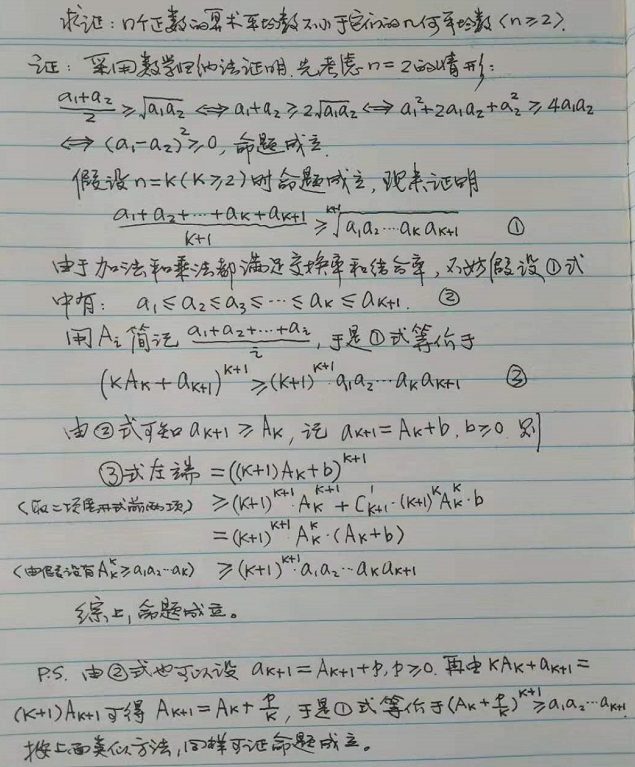 求证：n个正数的算术平均数不小于它们的几何平均数（n≥2）.
证：采用数学归纳法证明.先考虑n=2的情形：
(a₁+a₂)/2 ≥ √(a₁a₂) ⟺ a₁+a₂ ≥ 2√(a₁a₂) ⟺ a₁²+2a₁a₂+a₂² ≥ 4a₁a₂
⟺ (a₁-a₂)² ≥ 0, 命题成立.
假设n=k(k≥2)时命题成立, 现来证明
(a₁+a₂+⋯+aₖ+aₖ₊₁)/(k+1) ≥ ᵏ⁺¹√(a₁a₂⋯aₖaₖ₊₁) ①
由于加法和乘法都满足交换率和结合率, 不妨假设①式
中有: a₁≤a₂≤a₃≤⋯≤aₖ≤aₖ₊₁. ②
用Aᵢ简记 (a₁+a₂+⋯+aᵢ)/i, 于是①式等价于
(kAₖ+aₖ₊₁)ᵏ⁺¹ ≥ (k+1)ᵏ⁺¹a₁a₂⋯aₖaₖ₊₁ ③
由②式可知aₖ₊₁≥Aₖ, 记 aₖ₊₁=Aₖ+b, b≥0. 则
③式左端 = ((k+1)Aₖ+b)ᵏ⁺¹
(取二项展开式前两项) ≥ (k+1)ᵏ⁺¹·Aₖᵏ⁺¹+C¹ₖ₊₁·(k+1)ᵏAₖᵏ·b
= (k+1)ᵏ⁺¹Aₖᵏ·(Aₖ+b)
(由假设有Aₖᵏ≥a₁a₂⋯aₖ) ≥ (k+1)ᵏ⁺¹·a₁a₂⋯aₖaₖ₊₁
综上, 命题成立。
P.S. 由②式也可以设 aₖ₊₁=Aₖ₊₁+p, p≥0. 再由 kAₖ+aₖ₊₁=
(k+1)Aₖ₊₁可得 Aₖ₊₁=Aₖ+p/k, 于是①式等价于(Aₖ+p/k)ᵏ⁺¹≥a₁a₂⋯aₖ₊₁
按上面类似方法, 同样可证命题成立。